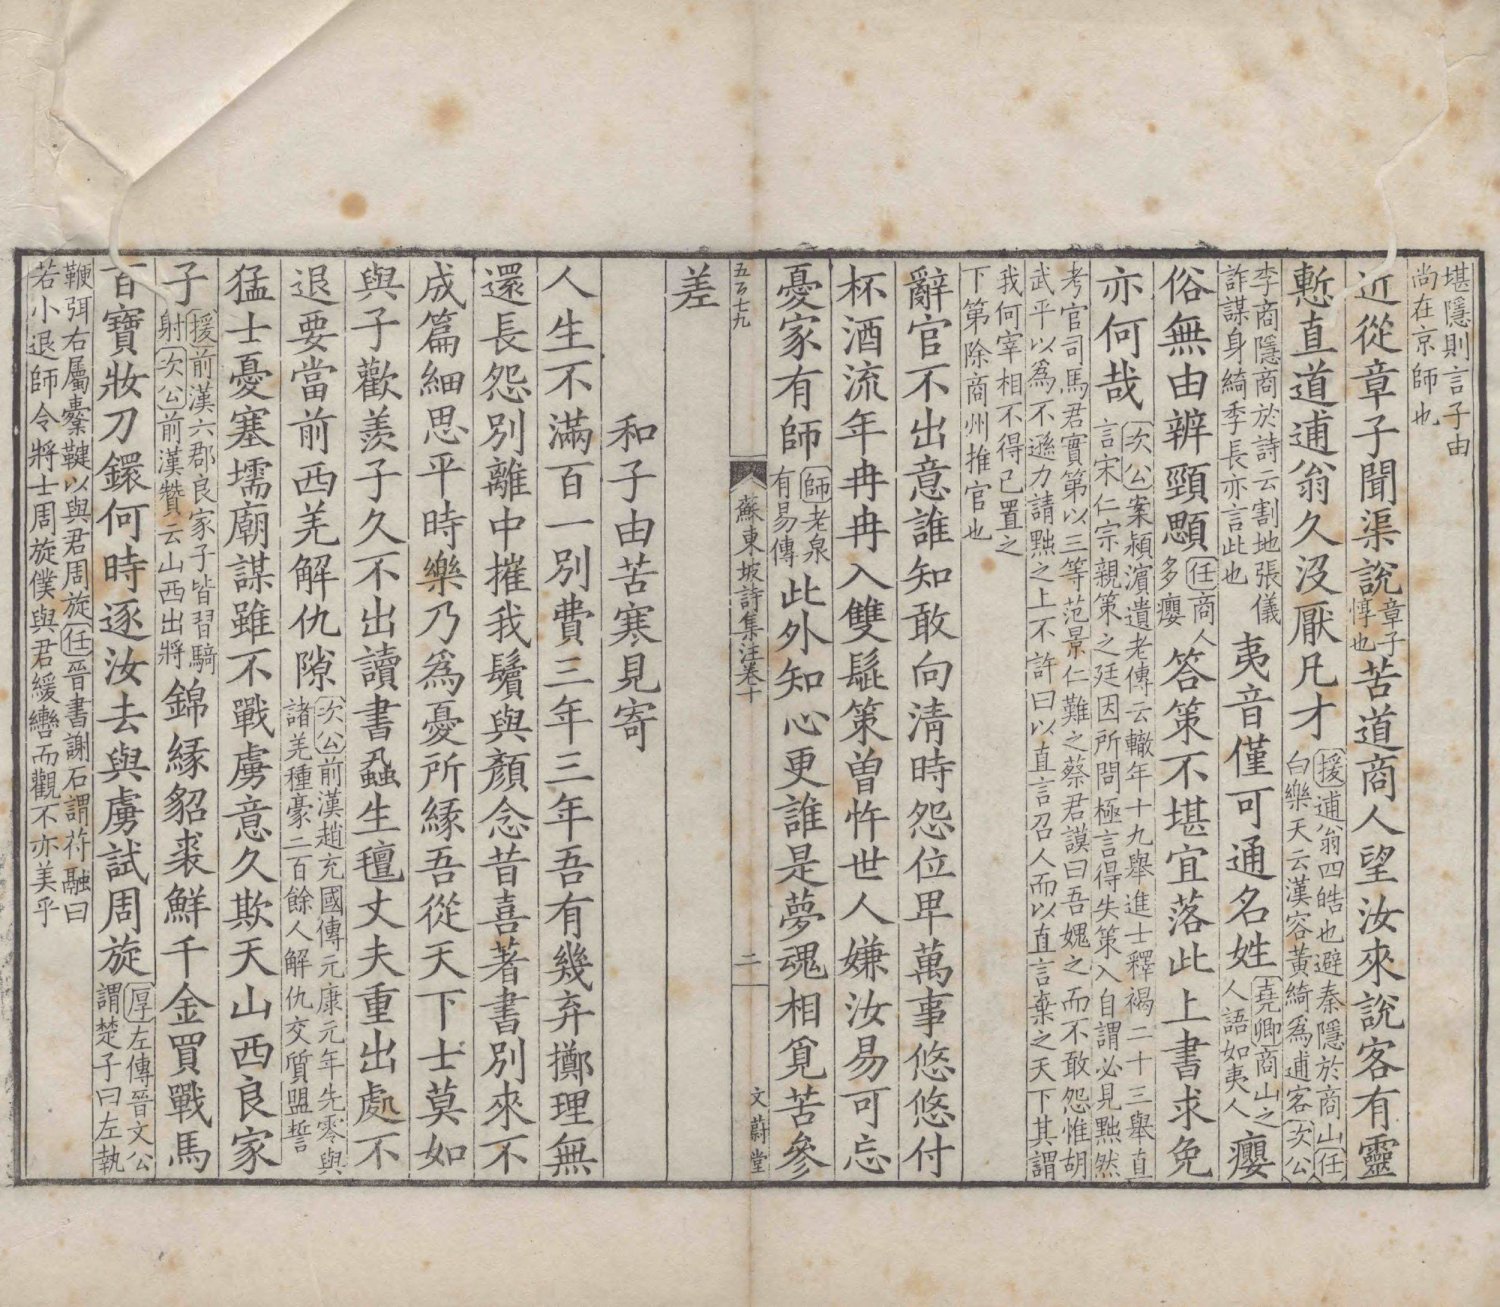 堪隱則言子由
尚在京師也
近從章子聞渠說章子惇也苦道商人望汝來說客有靈
慙直道逋翁久沒厭凡才援逋翁四皓也避秦隱於商山任白樂天云漢容黃綺爲逋客次公
李商隱商於詩云割地張儀詐謀身綺季長亦言此也夷音僅可通名姓堯卿商山之人語如夷人癭
俗無由辨頸顋任商人多癭答策不堪宜落此上書求免
亦何哉次公案潁濵遺老傳云轍年十九舉進士釋褐二十三舉直言宋仁宗親策之廷因所問極言得失策入自謂必見黜然
考官司馬君實第以三等范景仁難之蔡君謨曰吾媿之而不敢怨惟胡武平以爲不遜力請黜之上不許曰以直言召人而以直言棄之天下其謂
我何宰相不得已置之下第除商州推官也
辭官不出意誰知敢向清時怨位卑萬事悠悠付
杯酒流年冉冉入雙髭策曽忤世人嫌汝易可忘
憂家有師師老泉有易傳此外知心更誰是夢魂相覓苦參
五百七九
蘇東坡詩集注卷十
二
文蔚堂
差
和子由苦寒見寄
人生不滿百一別費三年三年吾有幾弃擲理無
還長怨別離中摧我鬢與顏念昔喜著書別來不
成篇細思平時樂乃爲憂所緣吾從天下士莫如
與子歡羨子久不出讀書蝨生氊丈夫重出處不
退要當前西羌解仇隙次公前漢趙充國傳元康元年先零與諸羌種豪二百餘人解仇交質盟誓
猛士憂塞壖廟謀雖不戰虜意久欺天山西良家
子援前漢六郡良家子皆習騎射次公前漢贊云山西出將錦緣貂裘鮮千金買戰馬
百寶妝刀鐶何時逐汝去與虜試周旋厚左傳晉文公謂楚子曰左執
鞭弭右屬櫜鞬以與君周旋任晉書謝石謂苻融曰若小退師令將士周旋僕與君緩轡而觀不亦美乎